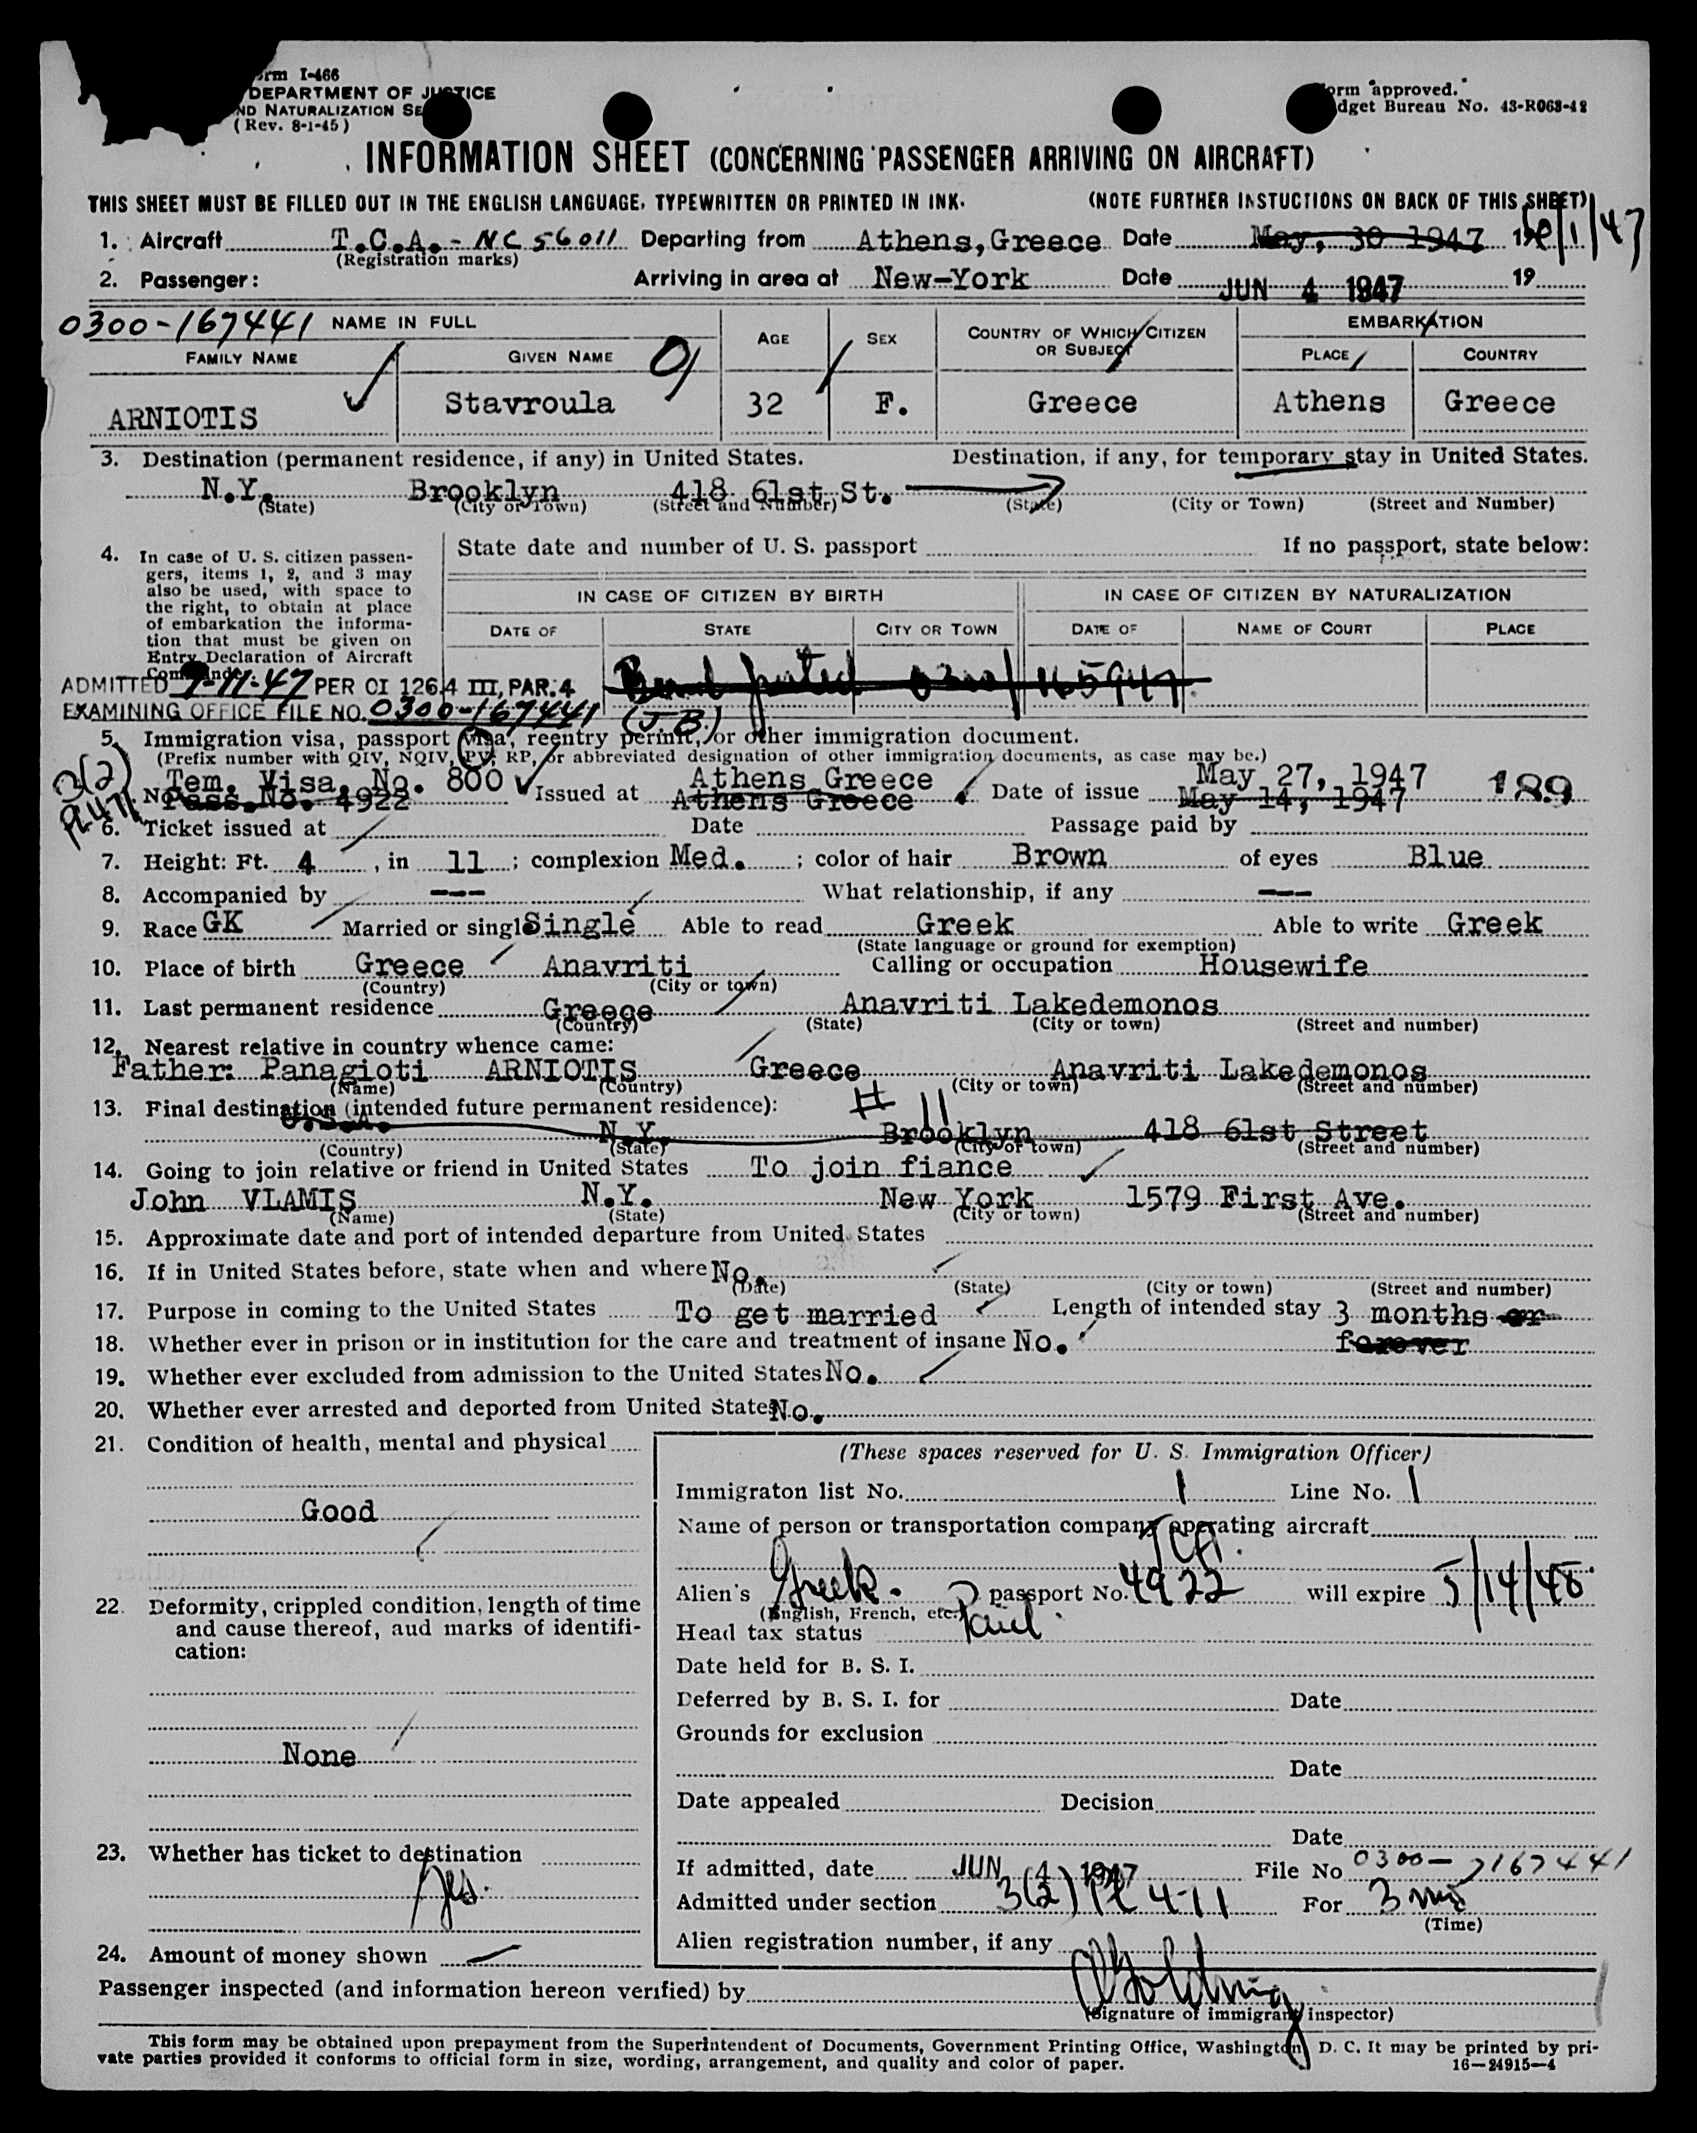 orm I-466
DEPARTMENT OF JUSTICE
ND NATURALIZATION SE
(Rev. 8-1-45)
orm approved.
dget Bureau No. 43-R063-42
INFORMATION SHEET (CONCERNING PASSENGER ARRIVING ON AIRCRAFT)
THIS SHEET MUST BE FILLED OUT IN THE ENGLISH LANGUAGE, TYPEWRITTEN OR PRINTED IN INK. (NOTE FURTHER INSTUCTIONS ON BACK OF THIS SHEET)
1. Aircraft T.C.A.- NC 56011 Departing from Athens, Greece Date May, 30 1947 6/1/47
(Registration marks)
2. Passenger: Arriving in area at New-York Date JUN 4 1947 19
0300-167441 NAME IN FULL AGE SEX COUNTRY OF WHICH CITIZEN OR SUBJECT EMBARKATION
FAMILY NAME GIVEN NAME PLACE COUNTRY
ARNIOTIS Stavroula 32 F. Greece Athens Greece
3. Destination (permanent residence, if any) in United States. Destination, if any, for temporary stay in United States.
N.Y. Brooklyn 418 61st St.
(State) (City or Town) (Street and Number) (State) (City or Town) (Street and Number)
4. In case of U. S. citizen passengers, items 1, 2, and 3 may also be used, with space to the right, to obtain at place of embarkation the information that must be given on Entry Declaration of Aircraft
State date and number of U. S. passport If no passport, state below:
IN CASE OF CITIZEN BY BIRTH IN CASE OF CITIZEN BY NATURALIZATION
DATE OF STATE CITY OR TOWN DATE OF NAME OF COURT PLACE
ADMITTED 7-11-47 PER OI 126.4 III, PAR. 4
EXAMINING OFFICE FILE NO. 0300-167441 (J.B.)
5. Immigration visa, passport visa, reentry permit, or other immigration document.
(Prefix number with QIV, NQIV, PV, RP, or abbreviated designation of other immigration documents, as case may be.)
3(2)
Tem. Visa No. 800 Athens Greece May 27, 1947
No. Pass.No. 4922 Issued at Athens Greece Date of issue May 14, 1947 189
6. Ticket issued at Date Passage paid by
7. Height: Ft. 4, in 11; complexion Med.; color of hair Brown of eyes Blue
8. Accompanied by --- What relationship, if any ---
9. Race GK Married or single Single Able to read Greek Able to write Greek
(State language or ground for exemption)
10. Place of birth Greece Anavriti Calling or occupation Housewife
(Country) (City or town)
11. Last permanent residence Greece Anavriti Lakedemonos
(Country) (State) (City or town) (Street and number)
12. Nearest relative in country whence came:
Father: Panagioti ARNIOTIS Greece Anavriti Lakedemonos
(Name) (Country) (City or town) (Street and number)
13. Final destination (intended future permanent residence): # 11
U.S.A. N.Y. Brooklyn 418 61st Street
(Country) (State) (City or town) (Street and number)
14. Going to join relative or friend in United States To join fiance
John VLAMIS N.Y. New York 1579 First Ave.
(Name) (State) (City or town) (Street and number)
15. Approximate date and port of intended departure from United States
16. If in United States before, state when and where No.
(Date) (State) (City or town) (Street and number)
17. Purpose in coming to the United States To get married Length of intended stay 3 months or
18. Whether ever in prison or in institution for the care and treatment of insane No. forever
19. Whether ever excluded from admission to the United States No.
20. Whether ever arrested and deported from United States No.
21. Condition of health, mental and physical
Good
22. Deformity, crippled condition, length of time
and cause thereof, and marks of identifi-
cation:
None
23. Whether has ticket to destination
Yes.
24. Amount of money shown
(These spaces reserved for U. S. Immigration Officer)
Immigraton list No. 1 Line No. 1
Name of person or transportation company operating aircraft
TCA.
Alien's Greek. passport No. 4922 will expire 5/14/48
(English, French, etc.)
Head tax status Paid.
Date held for B. S. I.
Deferred by B. S. I. for Date
Grounds for exclusion
Date
Date appealed Decision
Date
If admitted, date JUN 4 1947 File No 0300-167441
Admitted under section 3(2) PL 471 For 3 mos
(Time)
Alien registration number, if any
Passenger inspected (and information hereon verified) by
(Signature of immigrant inspector)
This form may be obtained upon prepayment from the Superintendent of Documents, Government Printing Office, Washington, D. C. It may be printed by pri-
vate parties provided it conforms to official form in size, wording, arrangement, and quality and color of paper. 16—24915-4